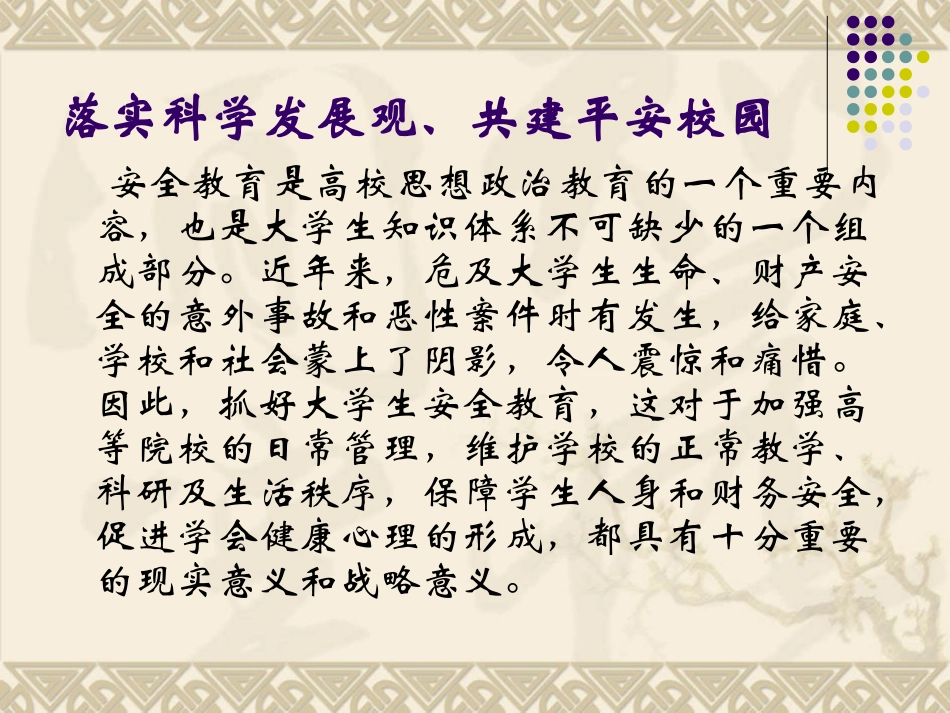 落实科学发展观、共建平安校园
安全教育是高校思想政治教育的一个重要内
容，也是大学生知识体系不可缺少的一个组
成部分。近年来，危及大学生生命、财产安
全的意外事故和恶性案件时有发生，给家庭、
学校和社会蒙上了阴影，令人震惊和痛惜。
因此，抓好大学生安全教育，这对于加强高
等院校的日常管理，维护学校的正常教学、
科研及生活秩序，保障学生人身和财务安全，
促进学会健康心理的形成，都具有十分重要
的现实意义和战略意义。